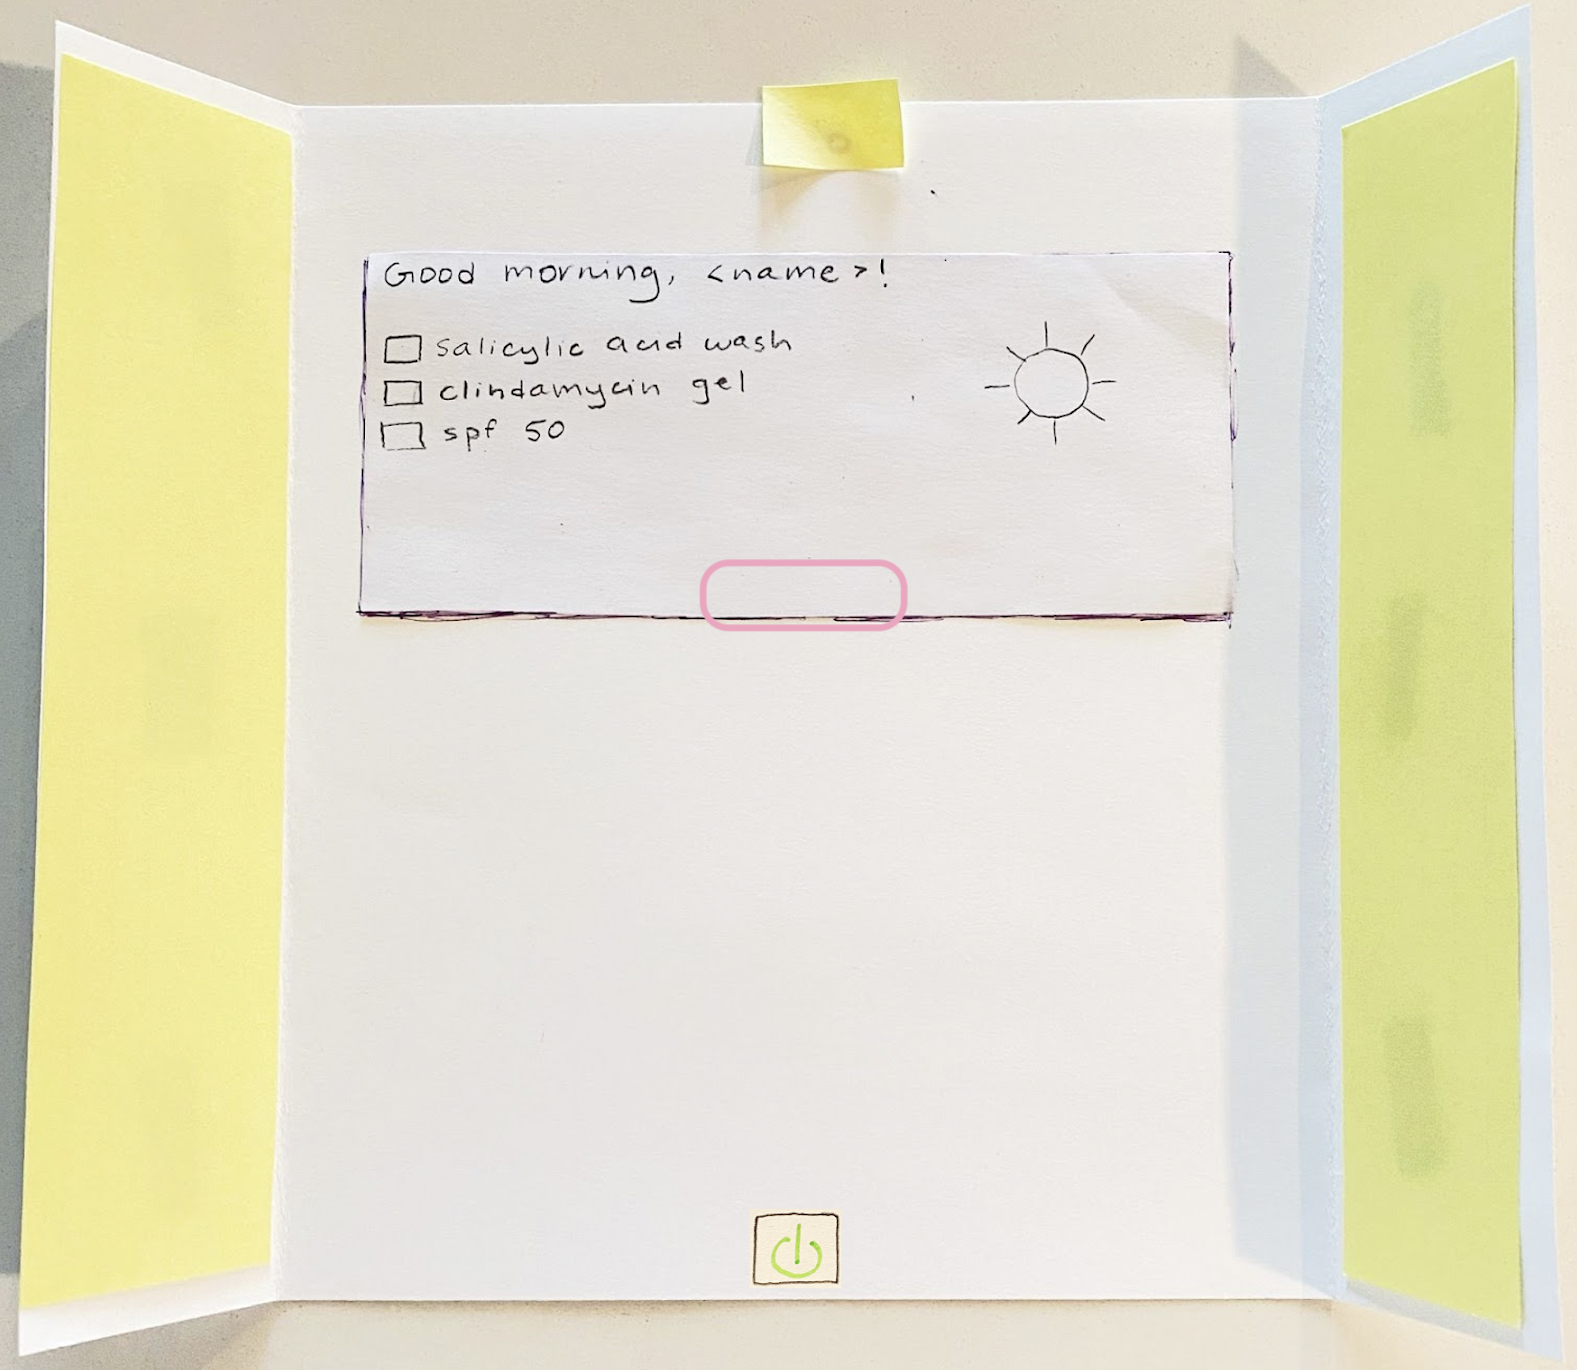 Good morning, <name>!
salicylic acid wash
clindamycin gel
spf 50